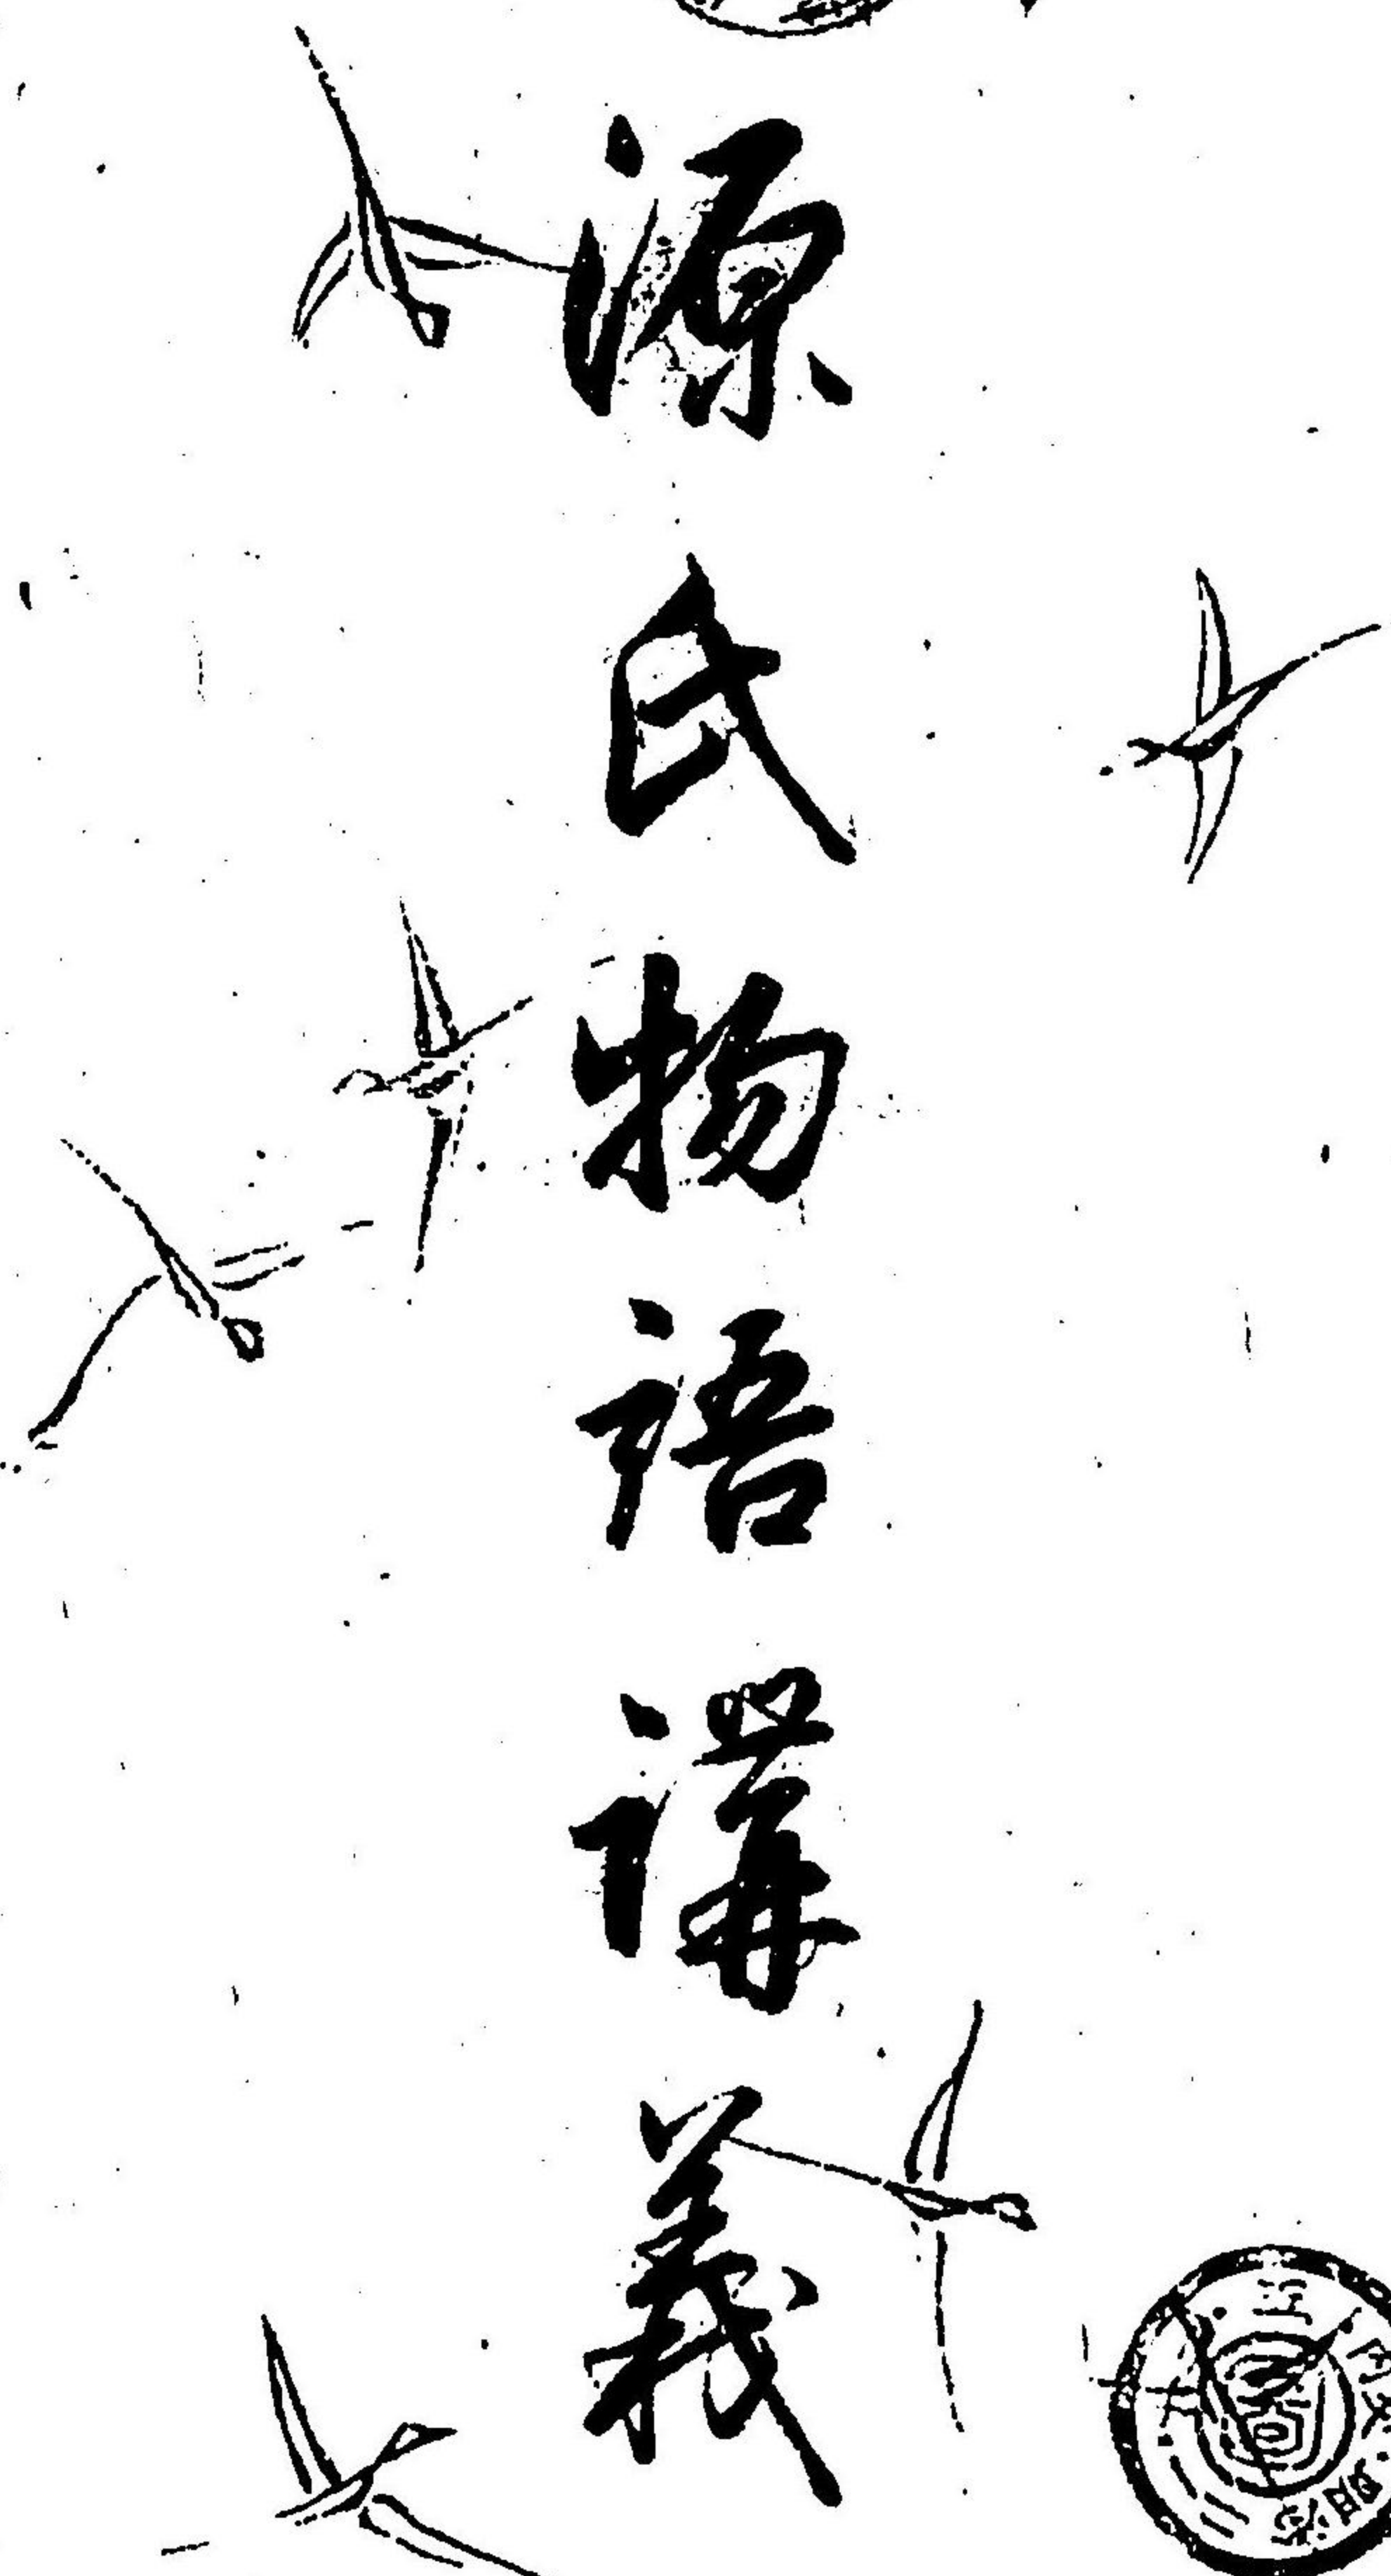 源氏物語講義